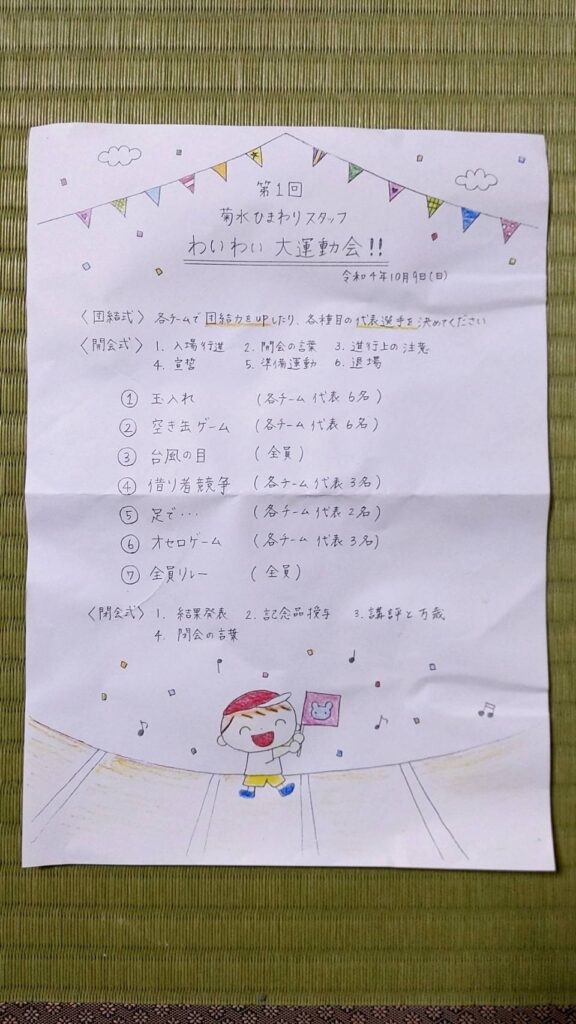 第1回
菊水ひまわりスタッフ
わいわい 大運動会!!
令和4年10月9日(日)
〈団結式〉 各チームで団結力をupしたり、各種目の代表選手を決めてください
〈開会式〉 1. 入場行進 2. 開会の言葉 3. 進行上の注意
4. 宣誓 5. 準備運動 6. 退場
① 玉入れ (各チーム代表6名)
② 空き缶ゲーム (各チーム代表6名)
③ 台風の目 (全員)
④ 借り者競争 (各チーム代表3名)
⑤ 足で・・・ (各チーム代表2名)
⑥ オセロゲーム (各チーム代表3名)
⑦ 全員リレー (全員)
〈閉会式〉 1. 結果発表 2. 記念品授与 3. 講評と万歳
4. 閉会の言葉